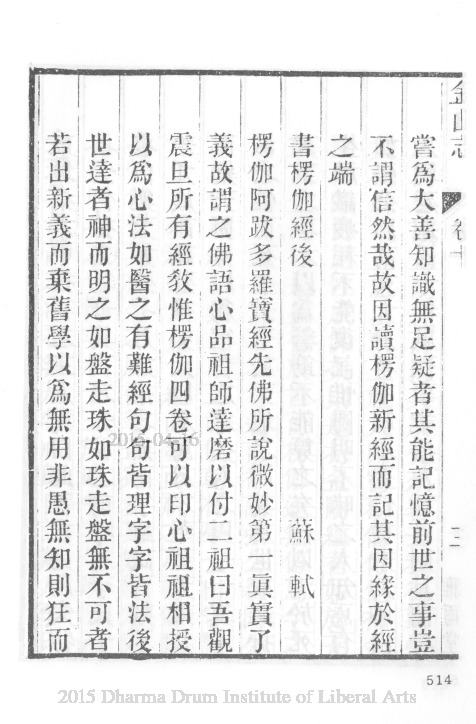 金山志 卷十 二
嘗為大善知識無足疑者其能記憶前世之事豈
不謂信然哉故因讀楞伽新經而記其因緣於經
之端
書楞伽經後 蘇軾
楞伽阿跋多羅寶經先佛所說微妙第一眞實了
義故謂之佛語心品祖師達磨以付二祖曰吾觀
震旦所有經敎惟楞伽四卷可以印心祖祖相授
以為心法如醫之有難經句句皆理字字皆法後
世達者神而明之如盤走珠如珠走盤無不可者
若出新義而棄舊學以為無用非愚無知則狂而
514
2015 Dharma Drum Institute of Liberal Arts